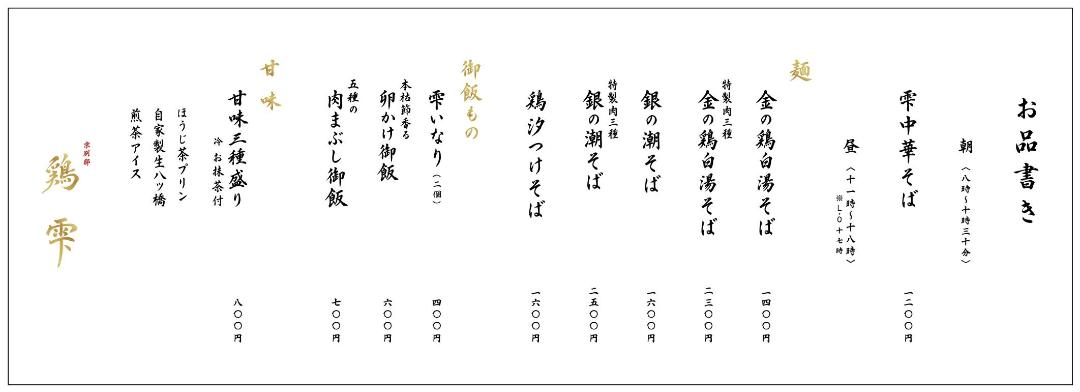 お品書き
朝（八時～十時三十分）
雫中華そば 一二〇〇円
昼（十一時～十八時）
※L.O十七時
麺
金の鶏白湯そば 一四〇〇円
特製肉三種
金の鶏白湯そば 二三〇〇円
銀の潮そば 一六〇〇円
特製肉三種
銀の潮そば 二五〇〇円
鶏汐つけそば 一六〇〇円
御飯もの
雫いなり（二個） 四〇〇円
本枯節香る
卵かけ御飯 六〇〇円
五種の
肉まぶし御飯 七〇〇円
甘味
甘味三種盛り 八〇〇円
冷お抹茶付
ほうじ茶プリン
自家製生八ッ橋
煎茶アイス
京別邸
鶏雫